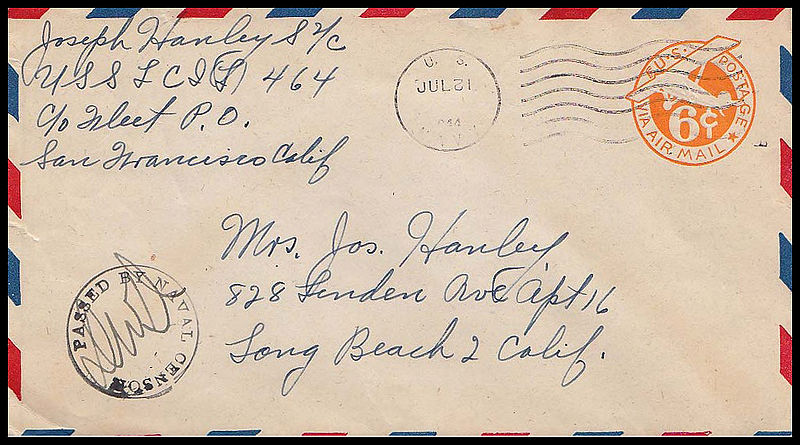 Joseph Hanley S 2/c
USS LCI(L) 464
c/o Fleet P.O.
San Francisco Calif
U. S.
JUL 21
1944
U.S. POSTAGE
VIA AIR MAIL
6¢
Mrs. Jos. Hanley
828 Linden Ave Apt 16
Long Beach 2 Calif.
PASSED BY NAVAL CENSOR